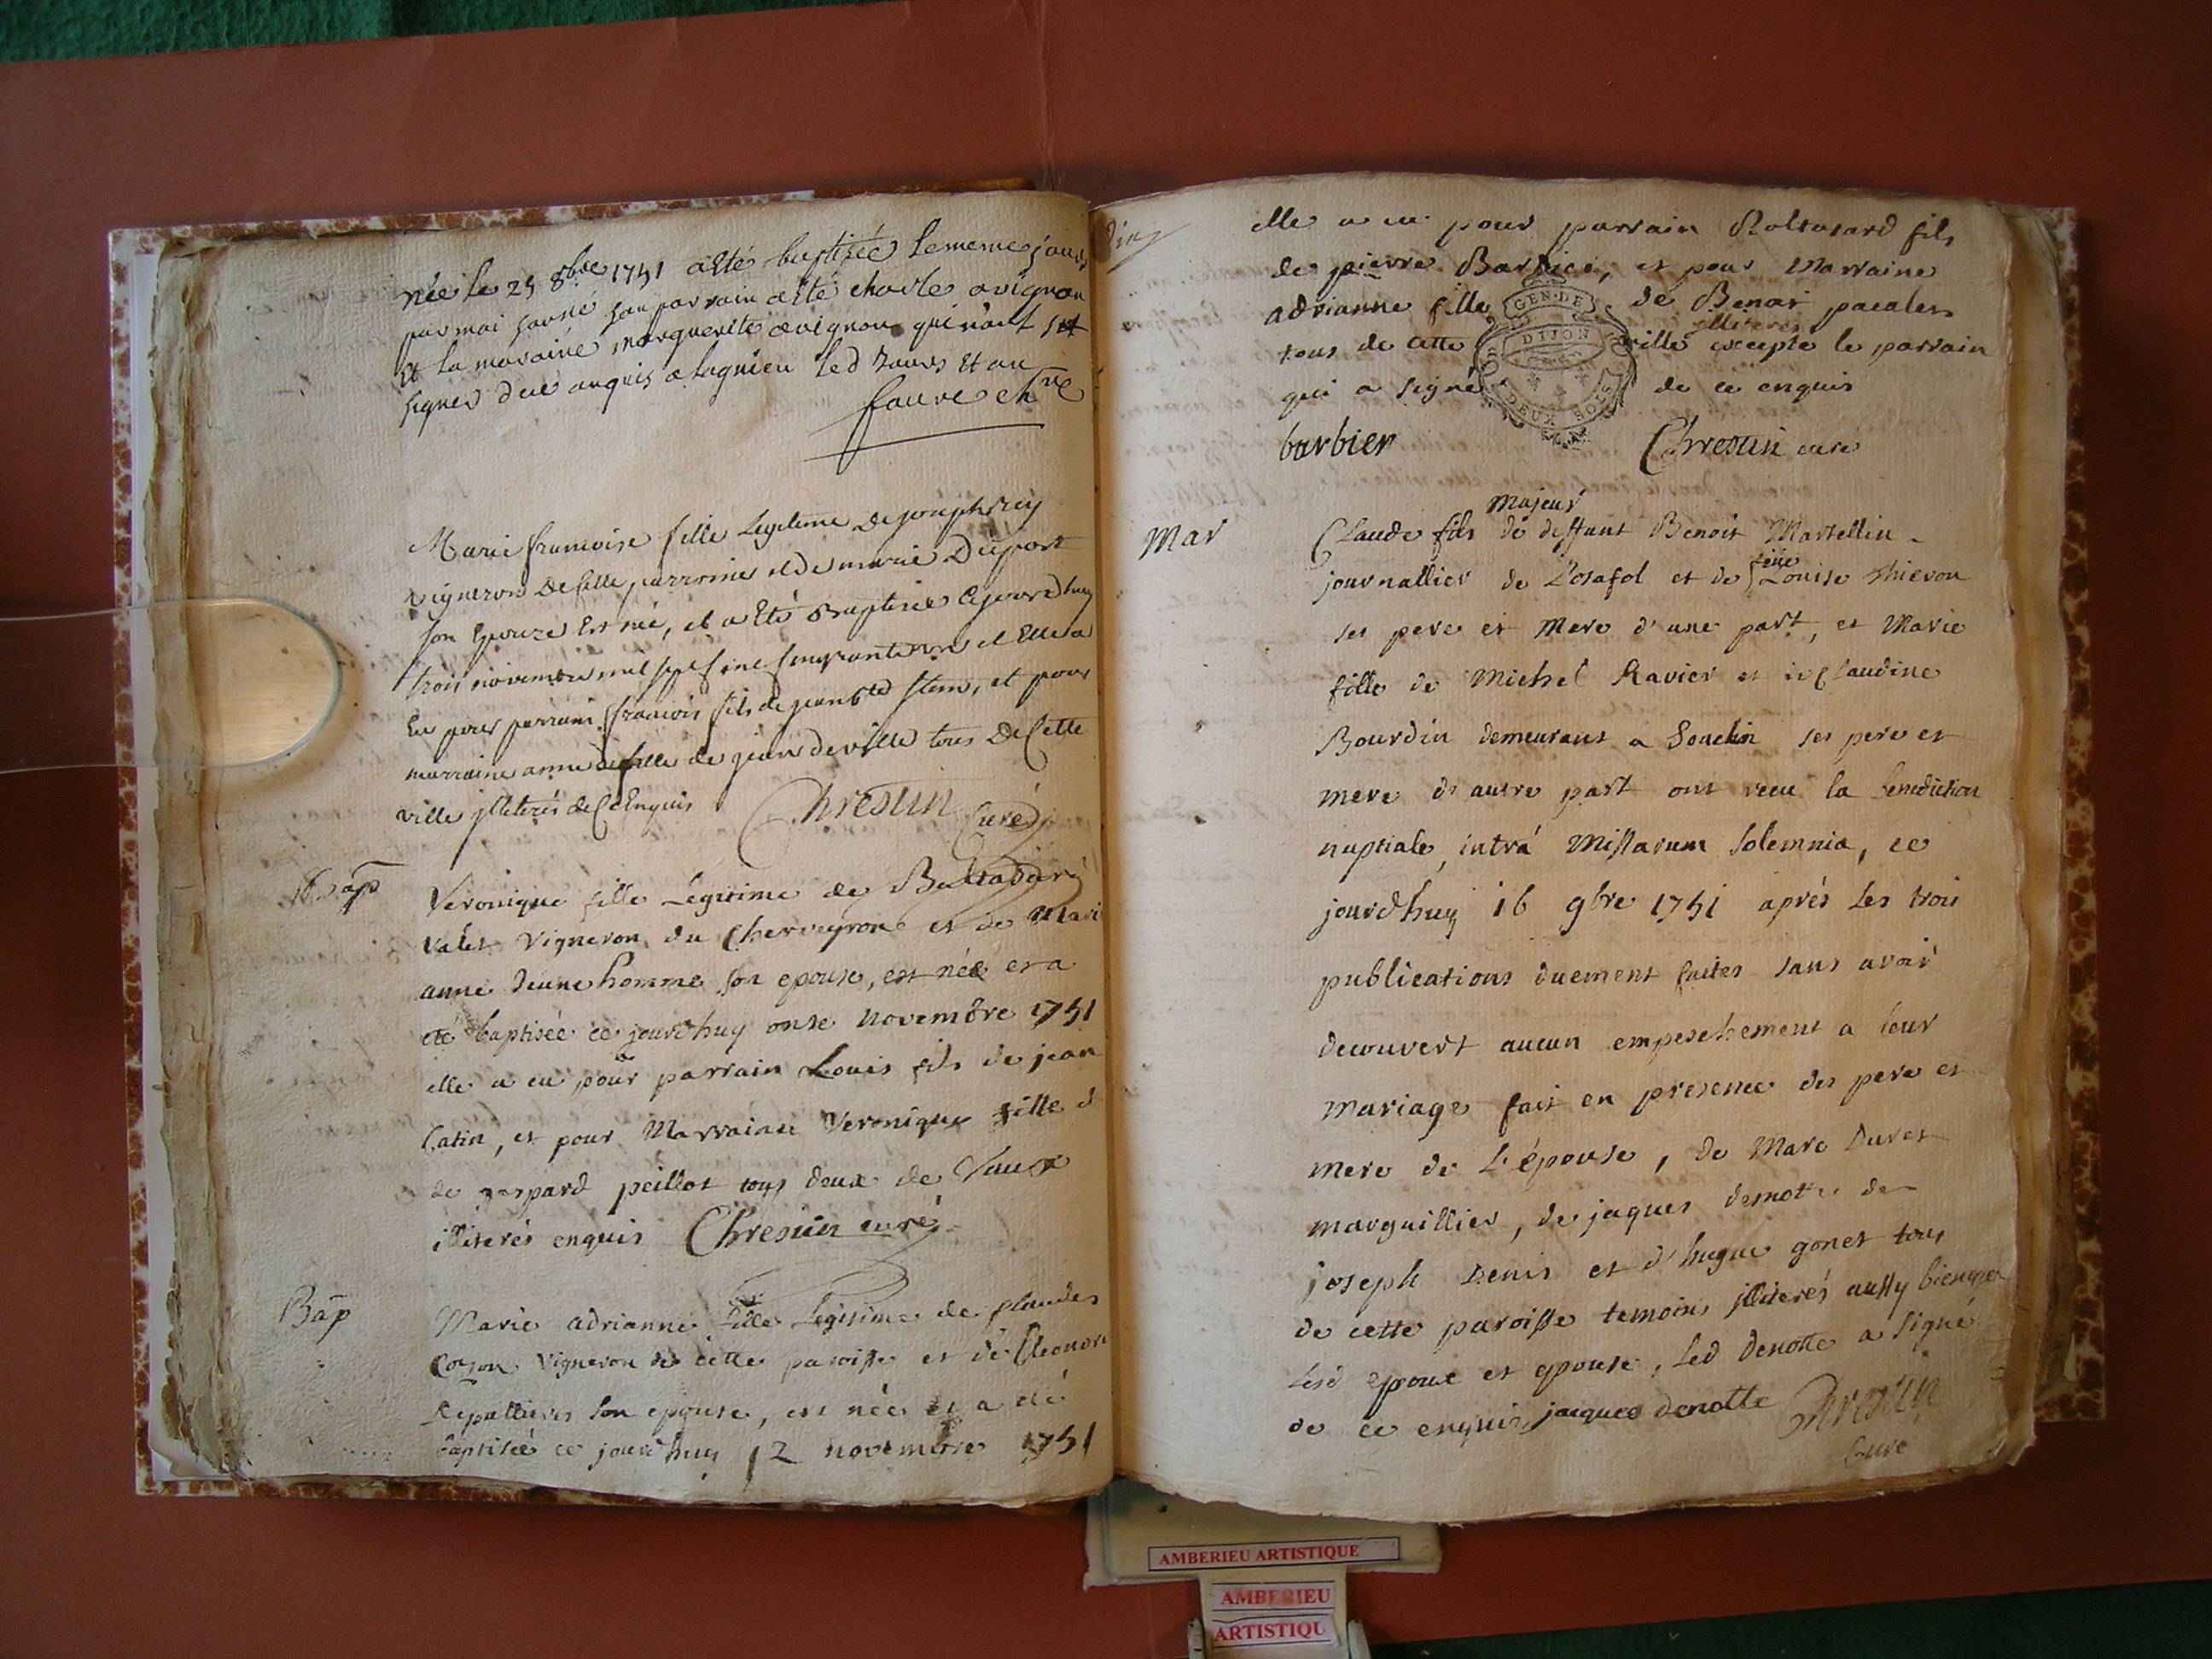 née le 25 8bre 1751 a été baptisée le meme jours
par moi son parrain a été charle avignon
et la maraine marguerite avignon qui n'ont sut
signer de ce enquis a lagnieu led jours et an
faure
Marie francoise fille Legitime De joseph
vigneron De cette parroisse et de marie Duport
son Epouze Est née, et a Eté Baptisée Cejourdhuy
trois novembre mil sept cinquante un et Elle a
Eu pour parrain francois fils de jean et pour
marraine anne fille de jean deville tous De Cette
ville jlleterés de Ce Enquis Chresun Curé
Bap
Veronique fille Legitime de Baltazard
Valet Vigneron du Cherveyron et de Mari
anne Jeune homme son epouse, est née et a
eté baptisée ce jourdhuy onse novembre 1751
elle a eu pour parrain Louis fils de jean
Catin, et pour Marraine Veronique fille d
de gaspard peillot tous deux de Vaux
illiterés enquis Chresun curé
Bap
Marie adrianne fille Legitime de Claudes
Cozon Vigneron de cette paroisse et de Eleonore
son epouse, est née et a eté
baptisée ce jourdhuy 12 novembre 1751
elle a eu pour parrain Baltasard fils
de pierre et pour Marraine
adrianne fille de Benoit
illiteres
tous de cette ville excepte le parrain
qui a signé de ce enquis
GEN. DE DIJON
DEUX SOLS
barbier Chresun curé
Mar
Majeur
Claude fils de deffunt Benoit Martellin
feüe
journallier de et de Louise thievon
ses pere et Mere d'une part, et Marie
fille de Michel Ravier et de Claudine
Bourdin demeurant a Souclin ses pere et
mere d'autre part ont receu la benediction
nuptiale, intrá Missarum Solemnia, ce
jourdhuy 16 9bre 1751 aprés Les trois
publications duement faites sans avoir
decouvert aucun empeschement a leur
mariage fait en presence des pere et
mere de L'épouse, de Marc Duret
marguillier, de jaques demotte de
joseph Denis et d'hugue gonet tous
de cette paroisse temoins jlliterés aussy bien que
Lesd epoux et epouse, Led Denotte a Signé
de ce enquis jacques denotte Chresun
Curé
AMBERIEU ARTISTIQUE
AMBERIEU
ARTISTIQU